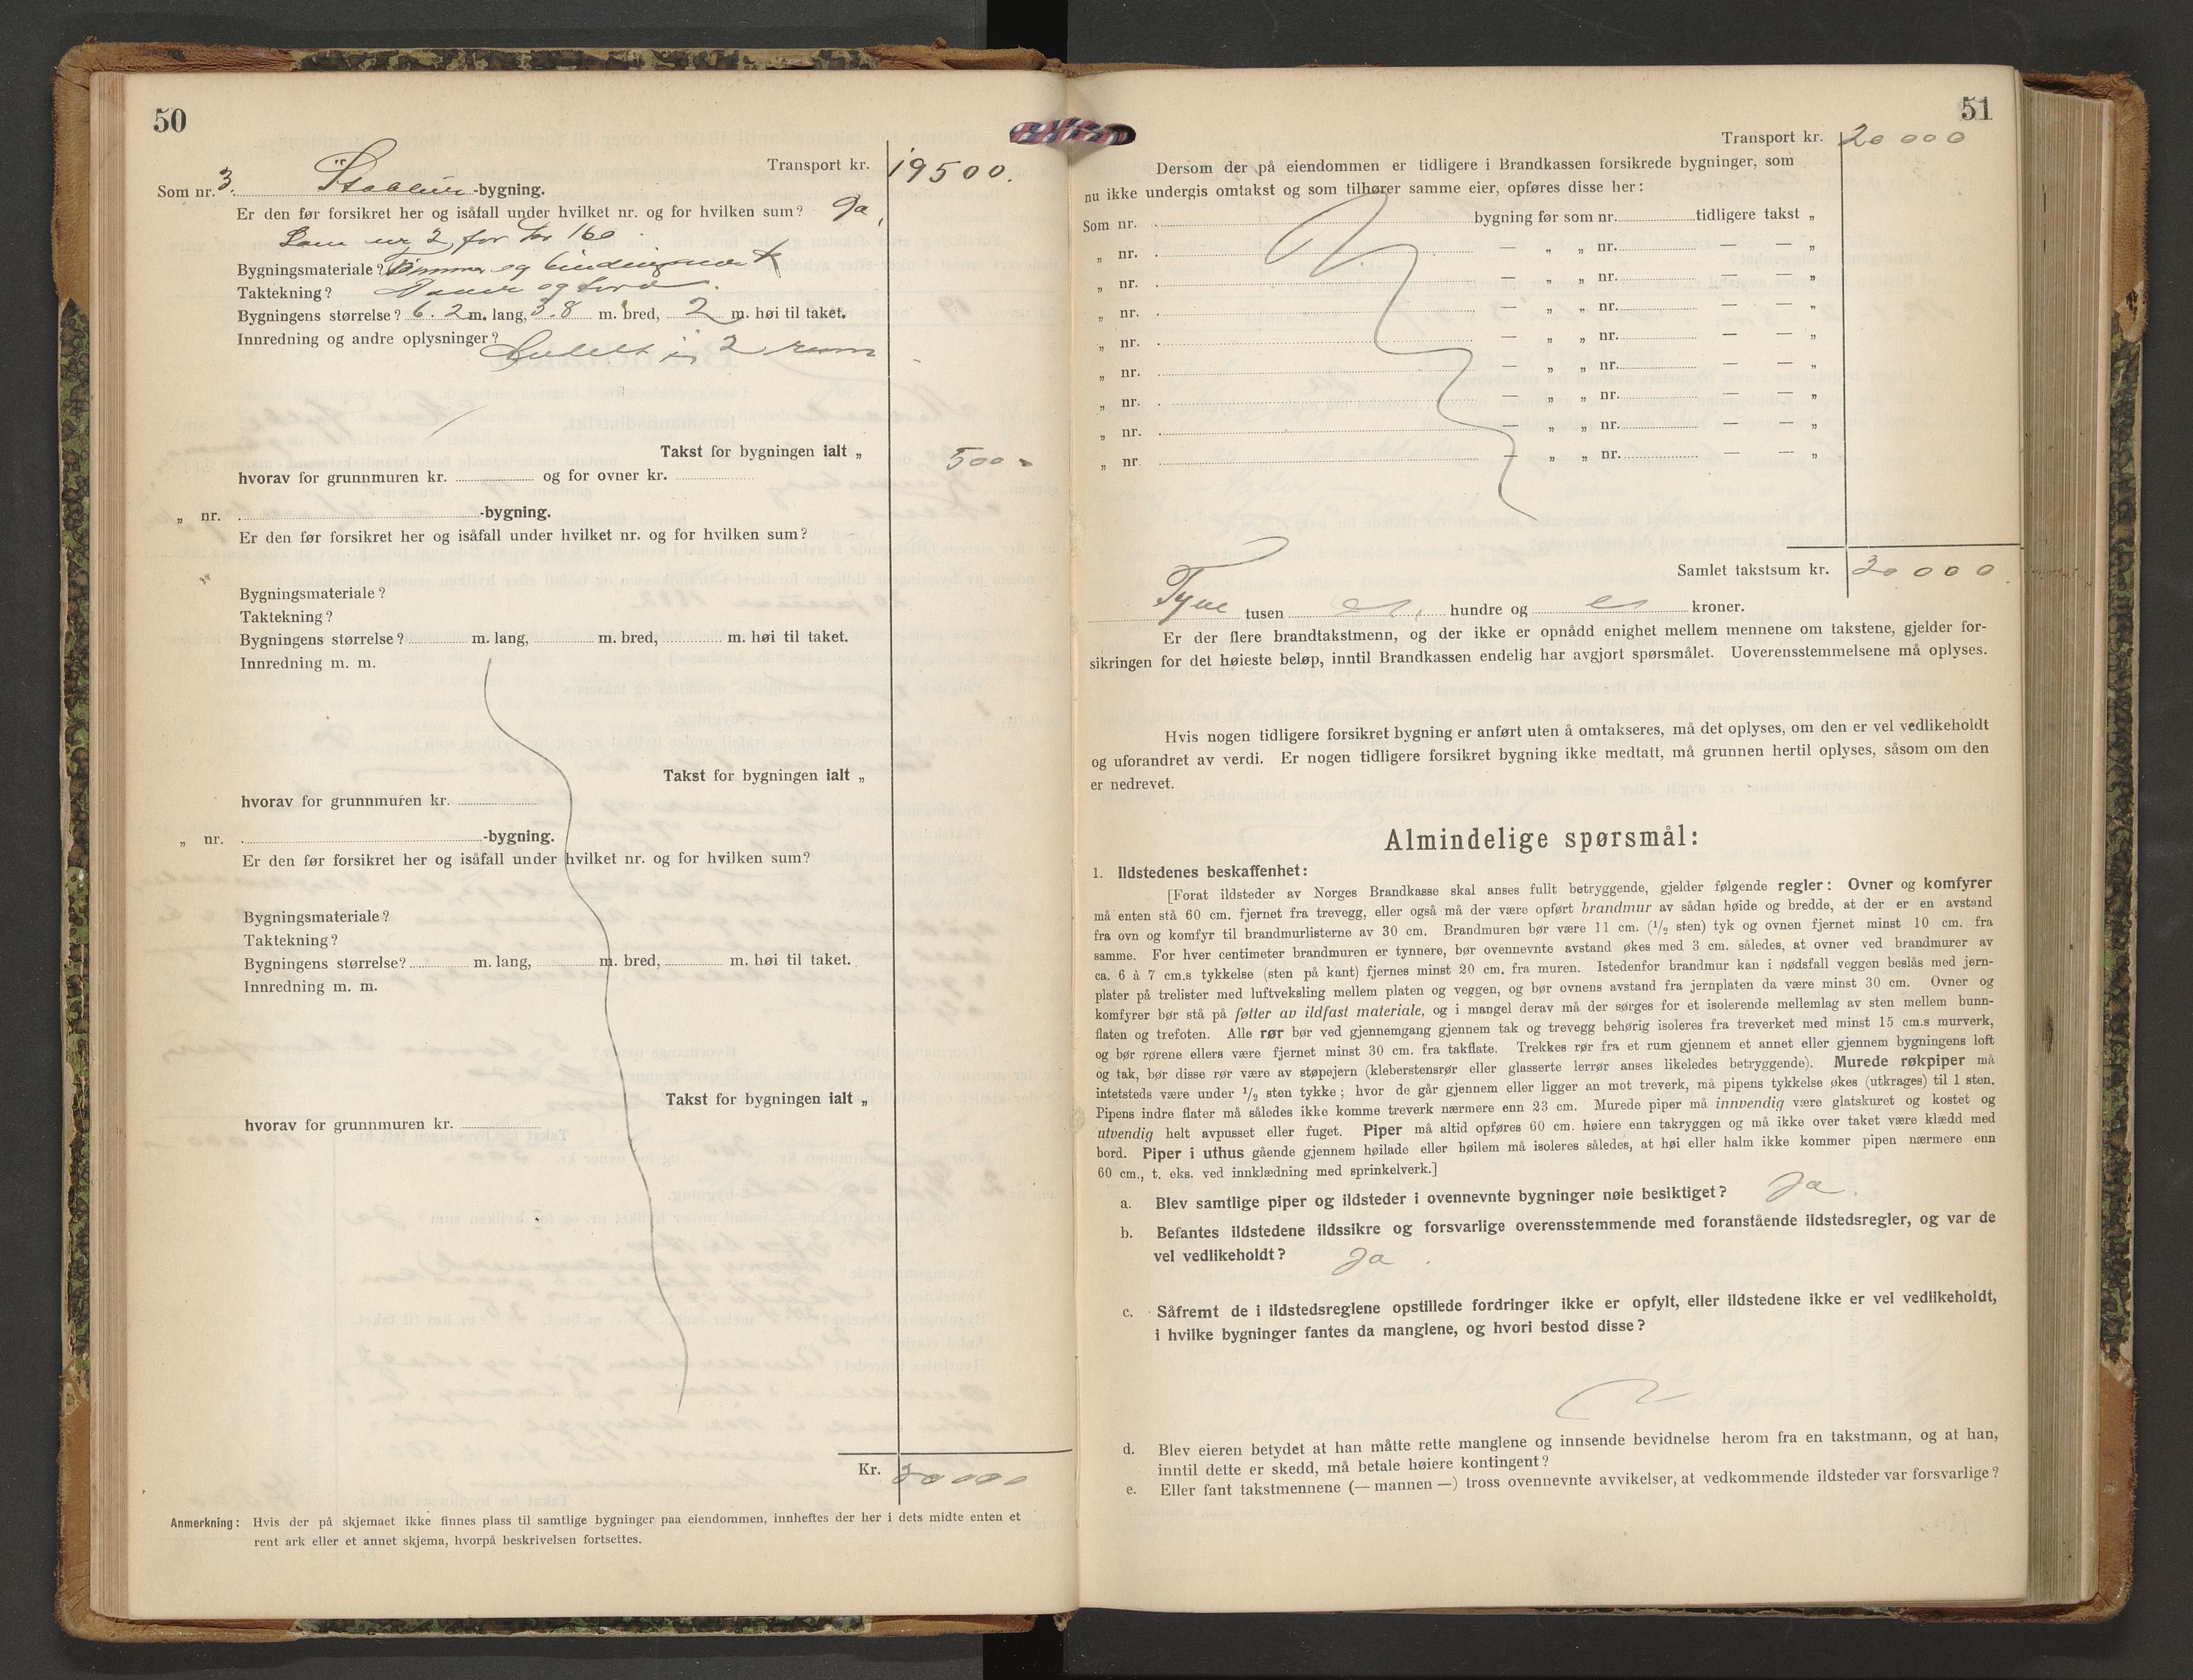 50
Transport kr. 19500.
Som nr. 3. Stabbur -bygning.
Er den før forsikret her og isåfall under hvilket nr. og for hvilken sum? Ja,
Som nr 2 for kr 160
Bygningsmateriale? Tømmer og bindingsverk
Taktekning? og
Bygningens størrelse? 6.2 m. lang, 3.8 m. bred, 2 m. høi til taket.
Innredning og andre oplysninger? Avdelt i 2 rum
Takst for bygningen ialt „ 500 -
hvorav for grunnmuren kr. og for ovner kr.
„ nr. -bygning.
Er den før forsikret her og isåfall under hvilket nr. og for hvilken sum?
Bygningsmateriale?
Taktekning?
Bygningens størrelse? m. lang, m. bred, m. høi til taket.
Innredning m. m.
Takst for bygningen ialt „
hvorav for grunnmuren kr.
„ nr. -bygning.
Er den før forsikret her og isåfall under hvilket nr. og for hvilken sum?
Bygningsmateriale?
Taktekning?
Bygningens størrelse? m. lang, m. bred, m. høi til taket.
Innredning m. m.
Takst for bygningen ialt „
hvorav for grunnmuren kr.
Kr. 20000
Anmerkning: Hvis der på skjemaet ikke finnes plass til samtlige bygninger paa eiendommen, innheftes der her i dets midte enten et
rent ark eller et annet skjema, hvorpå beskrivelsen fortsettes.
51
Transport kr. 20000
Dersom der på eiendommen er tidligere i Brandkassen forsikrede bygninger, som
nu ikke undergis omtakst og som tilhører samme eier, opføres disse her:
Som nr. bygning før som nr. tidligere takst „
„ nr. — „ „ nr. — — „
„ nr. — „ „ nr. — — „
„ nr. — „ „ nr. — — „
„ nr. — „ „ nr. — — „
„ nr. — „ „ nr. — — „
„ nr. — „ „ nr. — — „
„ nr. — „ „ nr. — — „
„ nr — „ „ nr. — — „
Samlet takstsum kr. 20000.
Tyve tusen hundre og kroner.
Er der flere brandtakstmenn, og der ikke er opnådd enighet mellem mennene om takstene, gjelder for-
sikringen for det høieste beløp, inntil Brandkassen endelig har avgjort spørsmålet. Uoverensstemmelsene må oplyses.
Hvis nogen tidligere forsikret bygning er anført uten å omtakseres, må det oplyses, om den er vel vedlikeholdt
og uforandret av verdi. Er nogen tidligere forsikret bygning ikke medtatt, må grunnen hertil oplyses, såsom om den
er nedrevet.
Almindelige spørsmål:
1. Ildstedenes beskaffenhet:
[Forat ildsteder av Norges Brandkasse skal anses fullt betryggende, gjelder følgende regler: Ovner og komfyrer
må enten stå 60 cm. fjernet fra trevegg, eller også må der være opført brandmur av sådan høide og bredde, at der er en avstand
fra ovn og komfyr til brandmurlisterne av 30 cm. Brandmuren bør være 11 cm. (1/2 sten) tyk og ovnen fjernet minst 10 cm. fra
samme. For hver centimeter brandmuren er tynnere, bør ovennevnte avstand økes med 3 cm. således, at ovner ved brandmurer av
ca. 6 à 7 cm.s tykkelse (sten på kant) fjernes minst 20 cm. fra muren. Istedenfor brandmur kan i nødsfall veggen beslås med jern-
plater på trelister med luftveksling mellem platen og veggen, og bør ovnens avstand fra jernplaten da være minst 30 cm. Ovner og
komfyrer bør stå på føtter av ildfast materiale, og i mangel derav må der sørges for et isolerende mellemlag av sten mellem bunn-
flaten og trefoten. Alle rør bør ved gjennemgang gjennem tak og trevegg behørig isoleres fra treverket med minst 15 cm.s murverk,
og bør rørene ellers være fjernet minst 30 cm. fra takflate. Trekkes rør fra et rum gjennem et annet eller gjennem bygningens loft
og tak, bør disse rør være av støpejern (kleberstensrør eller glasserte lerrør anses likeledes betryggende). Murede røkpiper må
intetsteds være under 1/2 sten tykke; hvor de går gjennem eller ligger an mot treverk, må pipens tykkelse økes (utkrages) til 1 sten.
Pipens indre flater må således ikke komme treverk nærmere enn 23 cm. Murede piper må innvendig være glatskuret og kostet og
utvendig helt avpusset eller fuget. Piper må altid opføres 60 cm. høiere enn takryggen og må ikke over taket være klædd med
bord. Piper i uthus gående gjennem høilade eller høilem må isoleres således, at høi eller halm ikke kommer pipen nærmere enn
60 cm., t. eks. ved innklædning med sprinkelverk.]
a. Blev samtlige piper og ildsteder i ovennevnte bygninger nøie besiktiget? Ja.
b. Befantes ildstedene ildssikre og forsvarlige overensstemmende med foranstående ildstedsregler, og var de
vel vedlikeholdt? Ja.
c. Såfremt de i ildstedsreglene opstillede fordringer ikke er opfylt, eller ildstedene ikke er vel vedlikeholdt,
i hvilke bygninger fantes da manglene, og hvori bestod disse?
d. Blev eieren betydet at han måtte rette manglene og innsende bevidnelse herom fra en takstmann, og at han,
inntil dette er skedd, må betale høiere kontingent?
e. Eller fant takstmennene (— mannen —) tross ovennevnte avvikelser, at vedkommende ildsteder var forsvarlige?